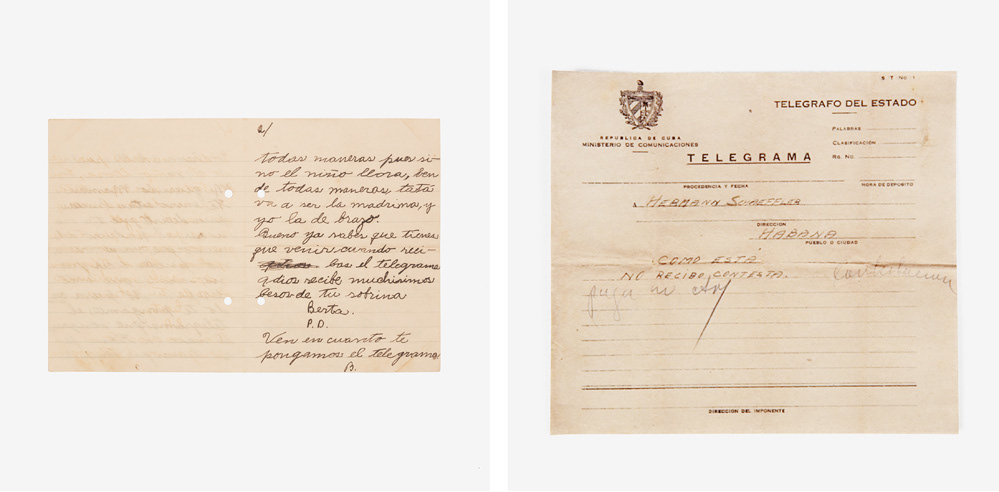 2/
todas maneras pues si
no el niño llora, ben
de todas maneras tata
va a ser la madrina, y
yo la de brazo.
Bueno ya sabes que tienes
que venir cuando reci-
bas el telegrama
adios recibe muchisimos
besos de tu sobrina
Berta.
P.D.
Ven en cuanto te
pongamos el telegrama
B.
S T No 1
TELEGRAFO DEL ESTADO
REPUBLICA DE CUBA
MINISTERIO DE COMUNICACIONES
PALABRAS
CLASIFICACIÓN
RG. NO.
TELEGRAMA
PROCEDENCIA Y FECHA
HORA DE DEPOSITO
A HERMANN SCHAEFFLER
DIRECCION
HABANA
PUEBLO O CIUDAD
COMO ESTA
NO RECIBO CONTESTA.
DIRECCION DEL IMPONENTE